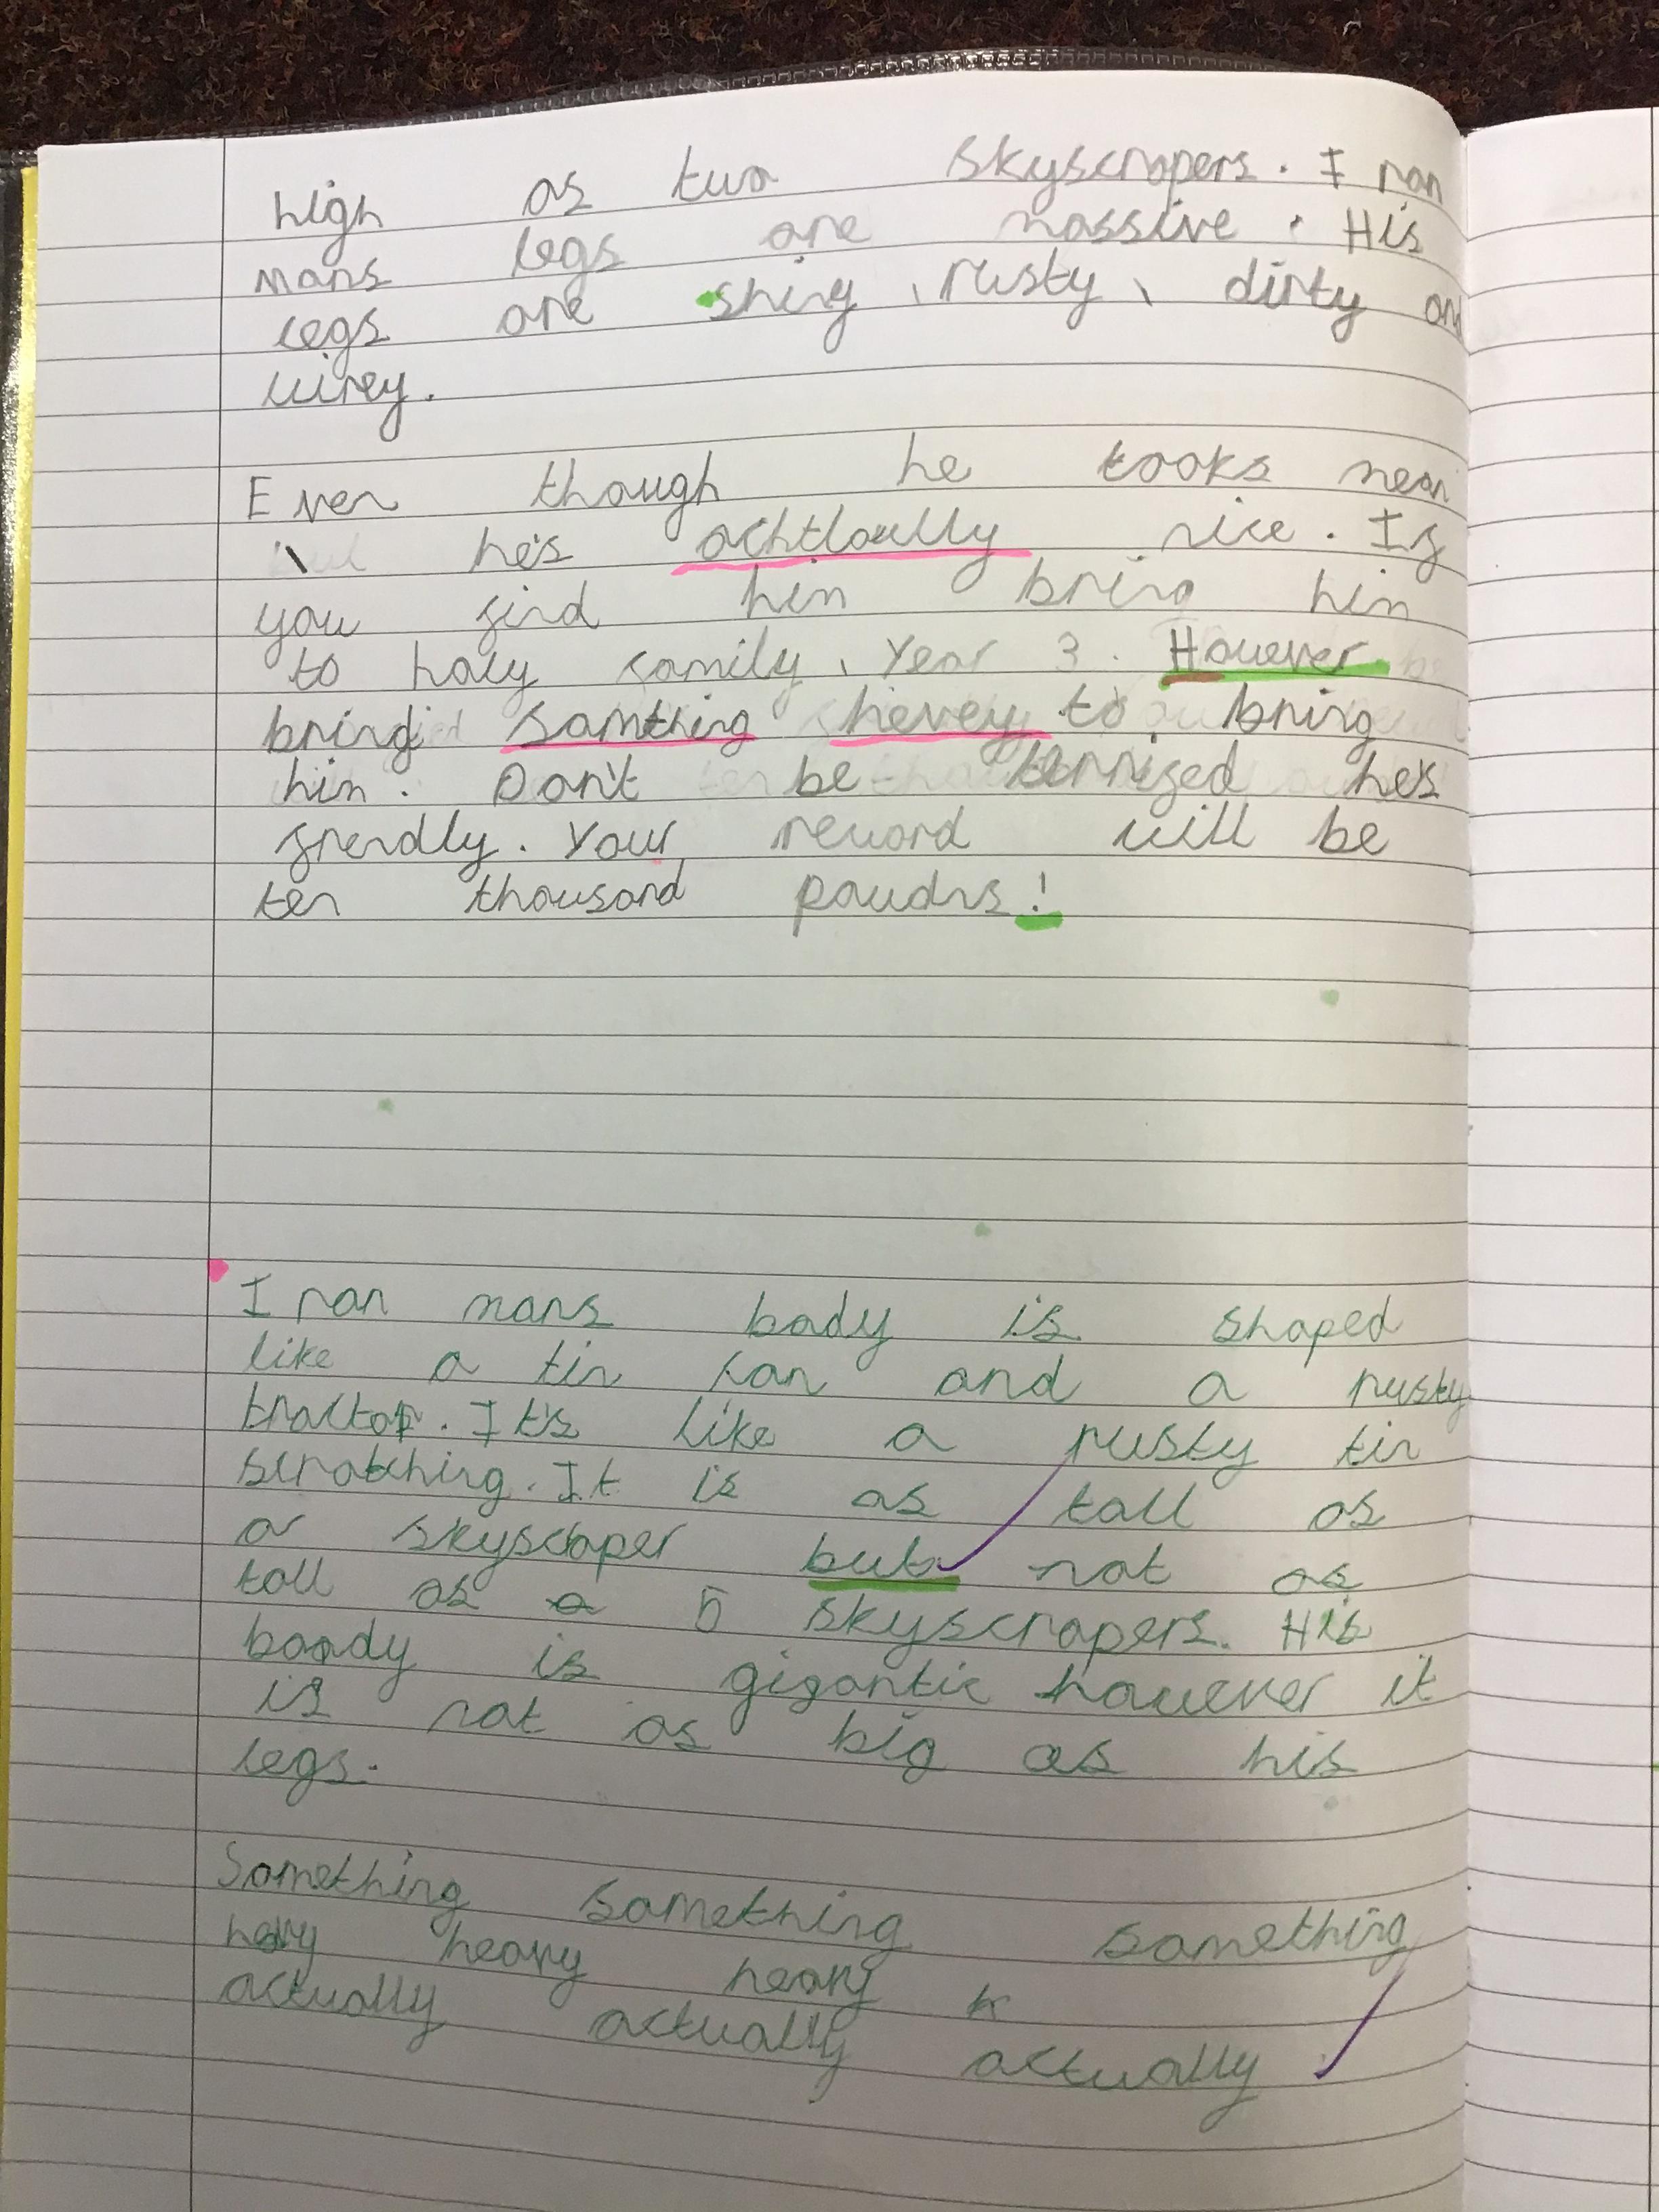 high as two skyscrapers. Iron
mans legs are massive. His
legs are shiny, rusty, dirty and
wirey.
Even though he looks mean
, he's achtloully nice. If
you find him bring him
to holy family, Year 3. However
bring somthing hevey to bring
him. Don't be terrifed he's
frendly. Your reword will be
ten thousand poudns!
Iron mans body is shaped
like a tin can and a rusty
tractor. It's like a rusty tin
scratching. It is as tall as
a skyscraper but not as
tall as a 5 skyscrapers. His
body is gigantic however it
is not as big as his
legs.
Something something something
heavy heavy heavy
actually actually actually